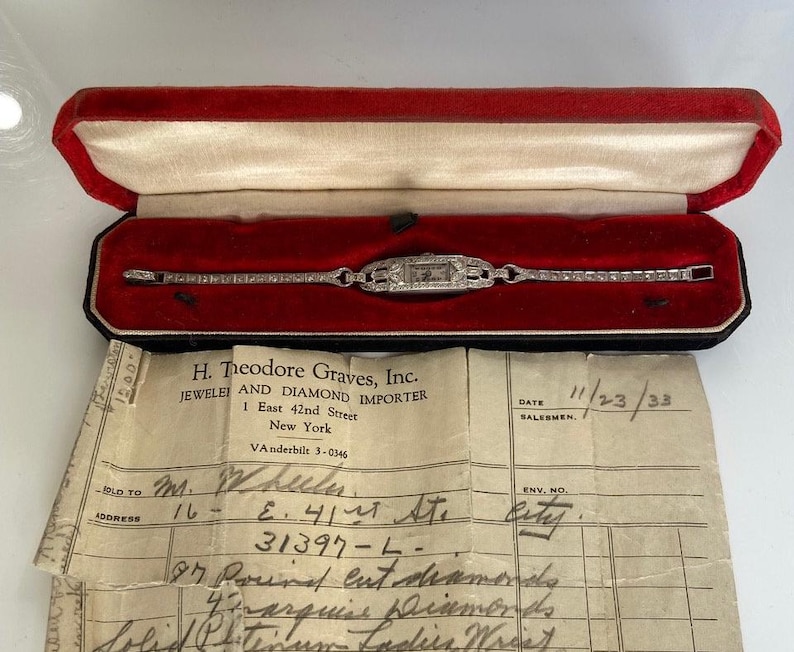 H. Theodore Graves, Inc.
JEWELER AND DIAMOND IMPORTER
1 East 42nd Street
New York
VAnderbilt 3-0346
DATE 11/23/33
SALESMEN.
SOLD TO Mr. Wheeler.
ENV. NO.
ADDRESS 16 - E. 41st St. City.
31397-L-.
87 Round cut diamonds
4 Marquise Diamonds
Solid Platinum Ladies Wrist